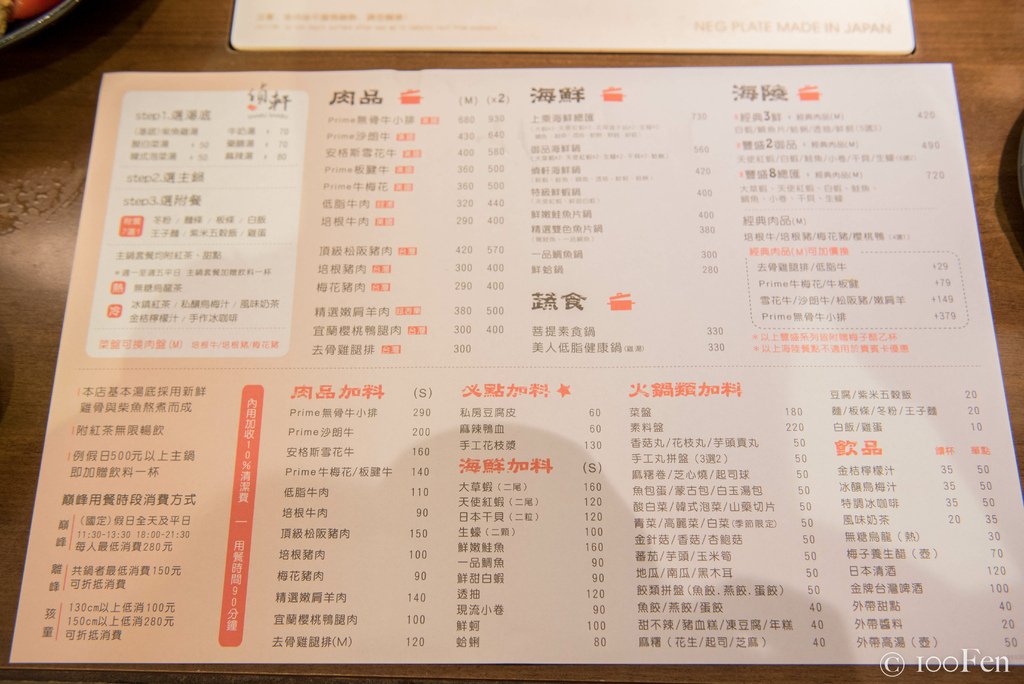 NEG PLATE MADE IN JAPAN
慎軒
step1.選湯底
(湯底)柴魚雞湯 牛奶湯 + 70
酸白菜湯 + 50 藥膳湯 + 70
韓式泡菜湯 + 50 麻辣湯 + 80
step2.選主鍋
step3.選附餐
附餐7選1
冬粉 / 麵條 / 板條 / 白飯
王子麵 / 紫米五穀飯 / 雞蛋
主鍋套餐均附紅茶、甜點
*週一至週五平日 主鍋套餐加贈飲料一杯
熱 無糖烏龍茶
冷 冰鎮紅茶 / 私釀烏梅汁 / 風味奶茶
金桔檸檬汁 / 手作冰咖啡
菜盤可換肉盤(M) 培根牛/培根豬/梅花豬
肉品 (M) (x2)
Prime無骨牛小排 美國 680 930
Prime沙朗牛 美國 430 640
安格斯雪花牛 美國 400 580
Prime板腱牛 美國 360 500
Prime牛梅花 美國 360 500
低脂牛肉 320 440
培根牛肉 美國 290 400
頂級松阪豬肉 台灣 420 570
培根豬肉 台灣 300 400
梅花豬肉 台灣 290 400
精選嫩肩羊肉 紐西蘭 380 500
宜蘭櫻桃鴨腿肉 台灣 300 400
去骨雞腿排 台灣 300
海鮮
上乘海鮮總匯 730
御品海鮮鍋 560
慎軒海鮮鍋 420
特級鮮蝦鍋 400
鮮嫩鮭魚片鍋 400
精選雙色魚片鍋 380
一品鯛魚鍋 300
鮮蛤鍋 280
蔬食
菩提素食鍋 330
美人低脂健康鍋(雞湯) 330
海陸
*經典3鮮 + 經典肉品(M) 420
*豐盛2御品 + 經典肉品(M) 490
天使紅蝦/白蝦/鮭魚/小卷/干貝/生蠔
*豐盛8總匯 + 經典肉品(M) 720
大草蝦、天使紅蝦、白蝦、鮭魚、
鯛魚、小卷、干貝、生蠔
經典肉品(M)
培根牛/培根豬/梅花豬/櫻桃鴨 (4選1)
經典肉品(M)可加價換
去骨雞腿排/低脂牛 +29
Prime牛梅花/牛板腱 +79
雪花牛/沙朗牛/松阪豬/嫩肩羊 +149
Prime無骨牛小排 +379
*以上豐盛系列皆附贈梅子醋乙杯
*以上海陸套餐不適用於貴賓卡優惠
本店基本湯底採用新鮮
雞骨與柴魚熬煮而成
附紅茶無限暢飲
例假日500元以上主鍋
即加贈飲料一杯
巔峰用餐時段消費方式
巔峰 (國定)假日全天及平日
11:30-13:30 18:00-21:30
每人最低消費280元
離峰 共鍋者最低消費150元
可折抵消費
孩童 130cm以上低消100元
150cm以上低消280元
可折抵消費
內用加收10%清潔費 — 用餐時間90分鐘
肉品加料 (S)
Prime無骨牛小排 290
Prime沙朗牛 200
安格斯雪花牛 160
Prime牛梅花/板腱牛 140
低脂牛肉 110
培根牛肉 90
頂級松阪豬肉 150
培根豬肉 100
梅花豬肉 90
精選嫩肩羊肉 140
宜蘭櫻桃鴨腿肉 100
去骨雞腿排(M) 120
必點加料 ★
私房豆腐皮 60
麻辣鴨血 60
手工花枝漿 130
海鮮加料 (S)
大草蝦(二尾) 160
天使紅蝦(二尾) 120
日本干貝(二粒) 120
生蠔(二顆) 100
鮮嫩鮭魚 160
一品鯛魚 90
鮮甜白蝦 90
透抽 120
現流小卷 90
鮮蚵 100
蛤蜊 80
火鍋類加料
菜盤 180
素料盤 220
香菇丸/花枝丸/芋頭貢丸 50
手工丸拼盤(3選2) 50
麻糬卷/芝心燒/起司球 50
魚包蛋/蒙古包/白玉湯包 50
酸白菜/韓式泡菜/山藥切片 50
青菜/高麗菜/白菜(季節限定) 50
金針菇/香菇/杏鮑菇 50
蕃茄/芋頭/玉米筍 50
地瓜/南瓜/黑木耳 50
餃類拼盤(魚餃.燕餃.蛋餃) 50
魚餃/燕餃/蛋餃 40
甜不辣/豬血糕/凍豆腐/年糕 40
麻糬(花生/起司/芝麻) 40
豆腐/紫米五穀飯 20
麵/板條/冬粉/王子麵 20
白飯/雞蛋 10
飲品 續杯 單點
金桔檸檬汁 35 50
冰釀烏梅汁 35 50
特調冰咖啡 35 50
風味奶茶 20 35
無糖烏龍(熱) 30
梅子養生醋(壺) 70
日本清酒 120
金牌台灣啤酒 100
外帶甜點 40
外帶醬料 20
外帶高湯(壺) 50
© 100Fen